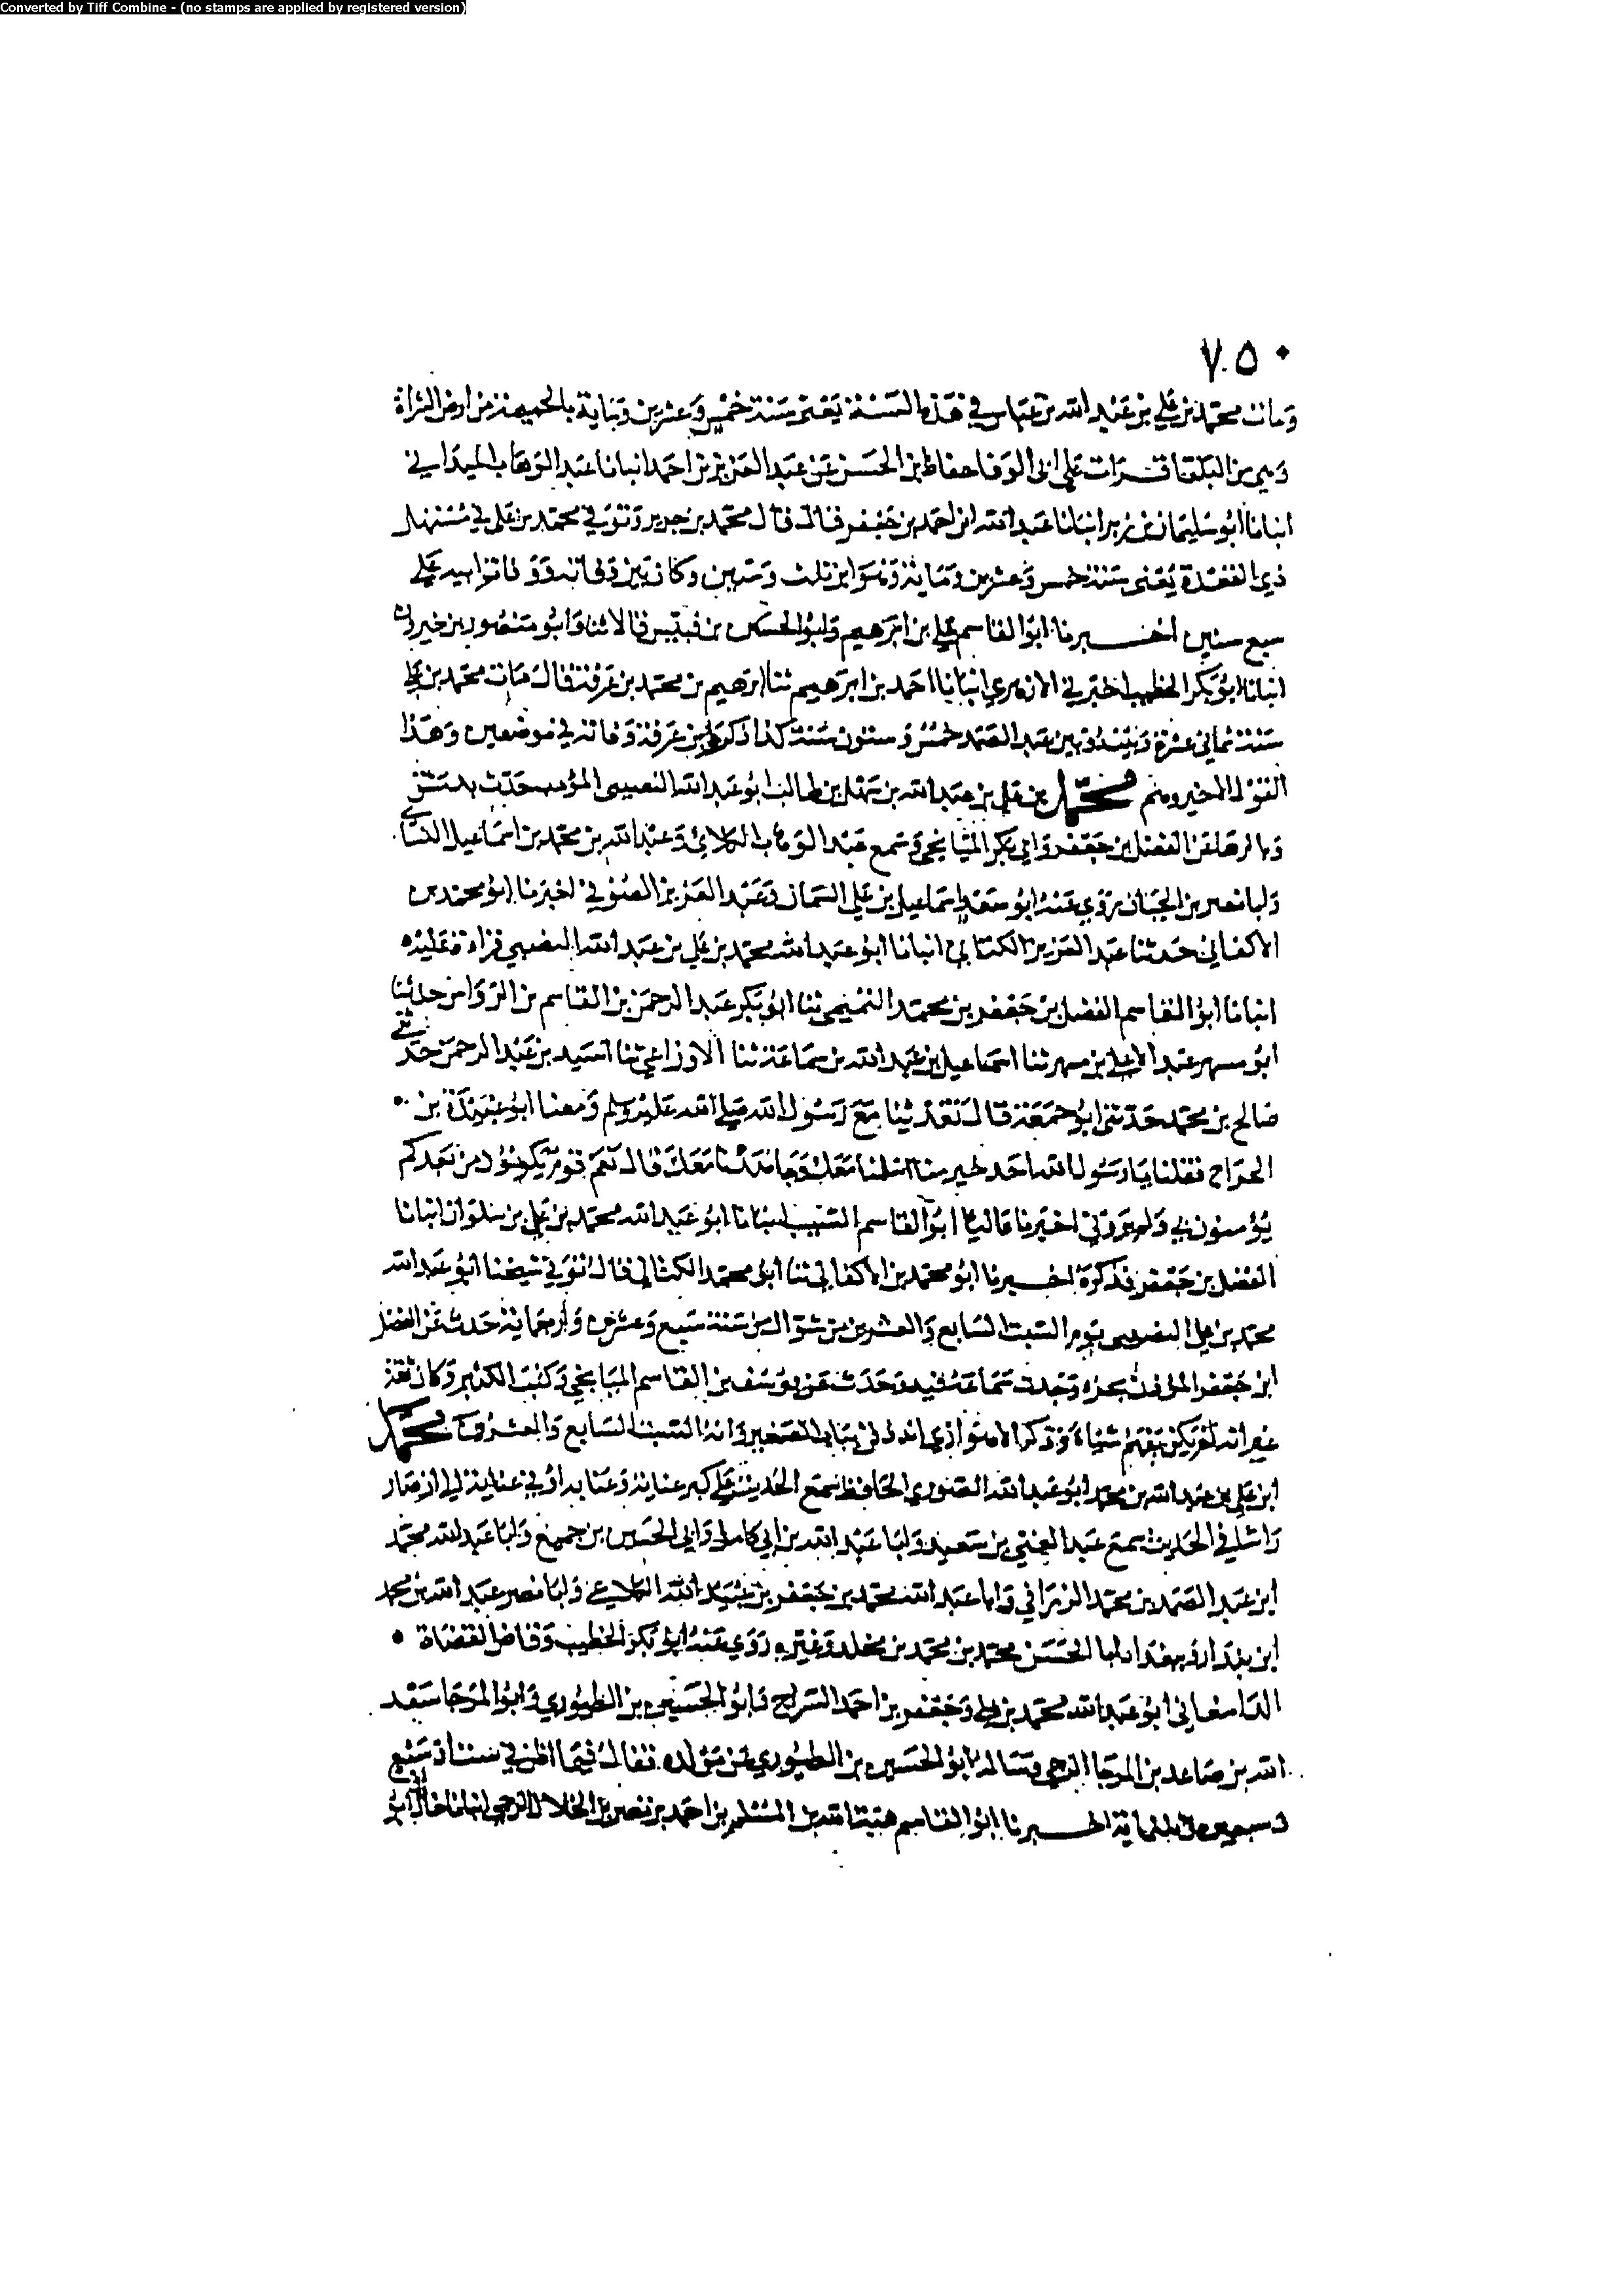 Converted by Tiff Combine - (no stamps are applied by registered version)
٧٥٠
ومات محمد بن علي بن عبد الله بن عباس في هذه السنة يعني سنة خمس وعشرين وماية بالحميمة من ارض الشراة
وهي من البلقا قرات على ابي الوفا حفاظ بن الحسن عن عبد العزيز بن احمد انبانا عبد الوهاب الميداني
انبانا ابو سليمان بن زبر انبانا عبد الله ابن احمد بن جعفر قال قال محمد بن جرير وتوفي محمد بن علي في مستهل
ذي القعدة يعني سنة خمس وعشرين وماية وهو ابن ثلث وستين وكان بين وفاته ووفاة ابيه علي
سبع سنين اخبرنا ابو القاسم علي بن ابرهيم وابو الحسن بن قبيس قالا ثنا وابو منصور بن خيرون
انبانا ابو بكر الخطيب اخبرني الازهري انبانا احمد بن ابرهيم ثنا ابرهيم بن محمد بن عرفة قال مات محمد بن علي
سنة ثماني عشرة وبينه وبين عبد الصمد خمس وستون سنة كذا ذكر ابن عرفة وفاته في موضعين وهذا
القول الاخير وهم محمد بن علي بن عبد الله بن سهل بن طالب ابو عبد الله النصيبي المؤدب حدث بدمشق
وبالرملة عن الفضل بن جعفر وابي بكر الميانجي وسمع عبد الوهاب الكلابي وعبد الله بن محمد بن اسماعيل
وابا نصر بن الجبان روى عنه ابو سعد اسماعيل بن علي السمان وعبد العزيز الصوفي اخبرنا ابو محمد بن
الاكفاني حدثنا عبد العزيز الكتاني انبانا ابو عبد الله محمد بن علي بن عبد الله النصيبي قراة عليه
انبانا ابو القاسم الفضل بن جعفر بن محمد التميمي ثنا ابو بكر عبد الرحمن بن القاسم بن الرواس حدثنا
ابو مسهر عبد الاعلى بن مسهر ثنا اسماعيل بن عبد الله بن سماعة ثنا الاوزاعي ثنا اسيد بن عبد الرحمن حدثني
صالح بن محمد حدثني ابو جمعة قال تغدينا مع رسول الله صلى الله عليه وسلم ومعنا ابو عبيدة بن
الجراح فقلنا يا رسول الله احد خير منا اسلمنا معك وجاهدنا معك قال نعم قوم يكونون من بعدكم
يؤمنون بي ولم يروني اخبرنا عاليا ابو القاسم النسيب انبانا ابو عبد الله محمد بن علي بن سلوان انبانا
الفضل بن جعفر فذكره اخبرنا ابو محمد بن الاكفاني ثنا ابو محمد الكتاني قال توفي شيخنا ابو عبد الله
محمد بن علي النصيبي يوم السبت السابع والعشرين من شوال من سنة سبع وعشرين واربعماية حدث عن الفضل
ابن جعفر المؤذن وجدت سماعه فيه وحدث عن يوسف بن القاسم الميانجي وكتب الكثير وكان ثقة
غير انه لم يكن يفهم شيئا وذكر انه السبت السابع والعشرون محمد
ابن علي بن عبد الله بن محمد ابو عبد الله الصوري الحافظ سمع الحديث على كبر عناية
سمع عبد الغني بن سعيد وابا عبد الله بن ابي كامل وابي الحسين بن جميع وابا عبد الله محمد
ابن عبد الصمد بن محمد الزرافي وابا عبد الله محمد بن جعفر بن عبيد الله الكلاعي وابا نصر عبد الله بن محمد
ابن بندار وببغداد ابا الحسن محمد بن محمد بن مخلد وغيره روى عنه ابو بكر الخطيب وقاضي القضاة
الدامغاني ابو عبد الله محمد بن علي وجعفر بن احمد السراج وابو الحسين بن الطيوري وابو المرجا سعد
الله بن صاعد بن المرجا الرحبي وساله ابو الحسين بن الطيوري عن مولده فقال فيما اظن في سنة سبع
وسبعين وثلثماية اخبرنا ابو القاسم هبة الله بن المسلم بن احمد بن نصر بن الخلال الرحبي انبانا خال ابي ابو